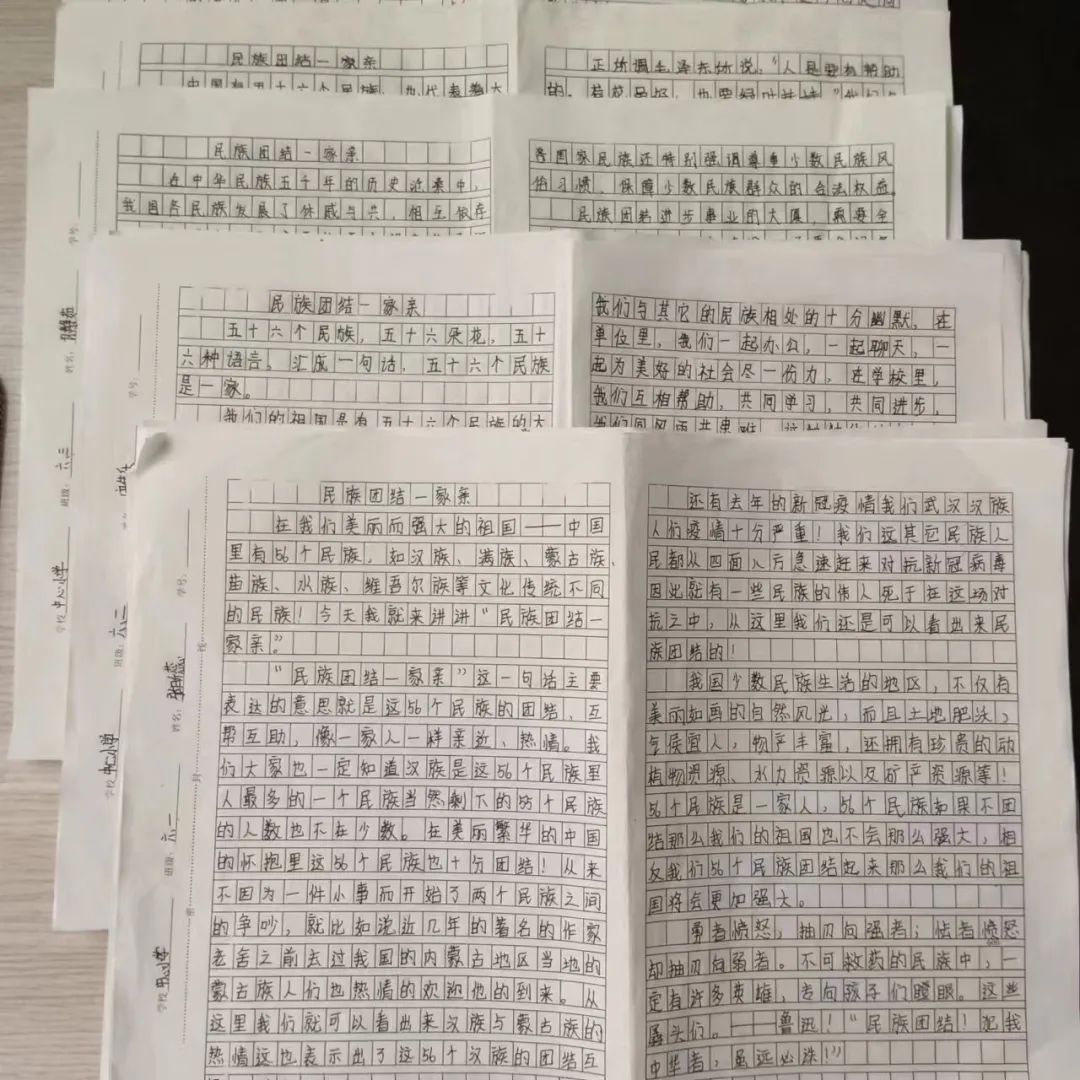 民族团结一家亲
中国有五十六个民族
正所谓毛泽东所说："人是要有帮助
的。荷花虽好，也要绿叶扶持。"
民族团结一家亲
在中华民族五千年的历史
中，
我国各民族发展了休戚与共，相互依存
各国家民族还特别强调尊重少数民族风
俗习惯，保障少数民族群众的合法权益。
民族团结进步事业的大厦，需要全
学号：
姓名：
班级：六、三
学校：中心小学
民族团结一家亲
五十六个民族，五十六朵花，五十
六种语言，汇成一句话，五十六个民族
是一家。
我们的祖国是有五十六个民族的大
我们与其它的民族相处的十分幽默，在
单位里，我们一起办公，一起聊天，一
起为美好的社会尽一份力，在学校里，
我们互相帮助，共同学习，共同进步，
我们同风雨共患难，
学号：
班级：六、二
学校：中心小学
民族团结一家亲
在我们美丽而强大的祖国——中国
里有56个民族，如汉族、满族、蒙古族、
苗族、水族、维吾尔族等文化传统不同
的民族！今天我就来讲讲"民族团结一
家亲。"
"民族团结一家亲"这一句话主要
表达的意思就是这56个民族的团结、互
帮互助，像一家人一样亲近、热情。我
们大家也一定知道汉族是这56个民族里
人最多的一个民族当然剩下的55个民族
的人数也不在少数。在美丽繁华的中国
的怀抱里这56个民族也十分团结！从来
不因为一件小事而开始了两个民族之间
的争吵，就比如说近几年的著名的作家
老舍之前去过我国的内蒙古地区当地的
蒙古族人们也热情的欢迎他的到来。从
这里我们就可以看出来汉族与蒙古族的
热情这也表示出了这56个汉族的团结互
还有去年的新冠疫情我们武汉汉族
人们疫情十分严重！我们这其它民族人
民都从四面八方急速赶来对抗新冠病毒
因此就有一些民族的伟人死于在这场对
抗之中，从这里我们还是可以看出来民
族团结的！
我国少数民族生活的地区，不仅有
美丽如画的自然风光，而且土地肥沃，
气侯宜人，物产丰富，还拥有珍贵的动
植物资源、水力资源以及矿产资源等！
56个民族是一家人，56个民族如果不团
结那么我们的祖国也不会那么强大，相
反我们56个民族团结起来那么我们的祖
国将会更加强大。
勇者愤怒，抽刃向强者；怯者愤怒
却抽刃向弱者。不可救药的民族中，一
定有许多英雄，专向孩子们瞪眼。这些
孱头们。——鲁迅！"民族团结！犯我
中华者，虽远必诛！"
学号：
姓名：
班级：六、一
学校：中心小学